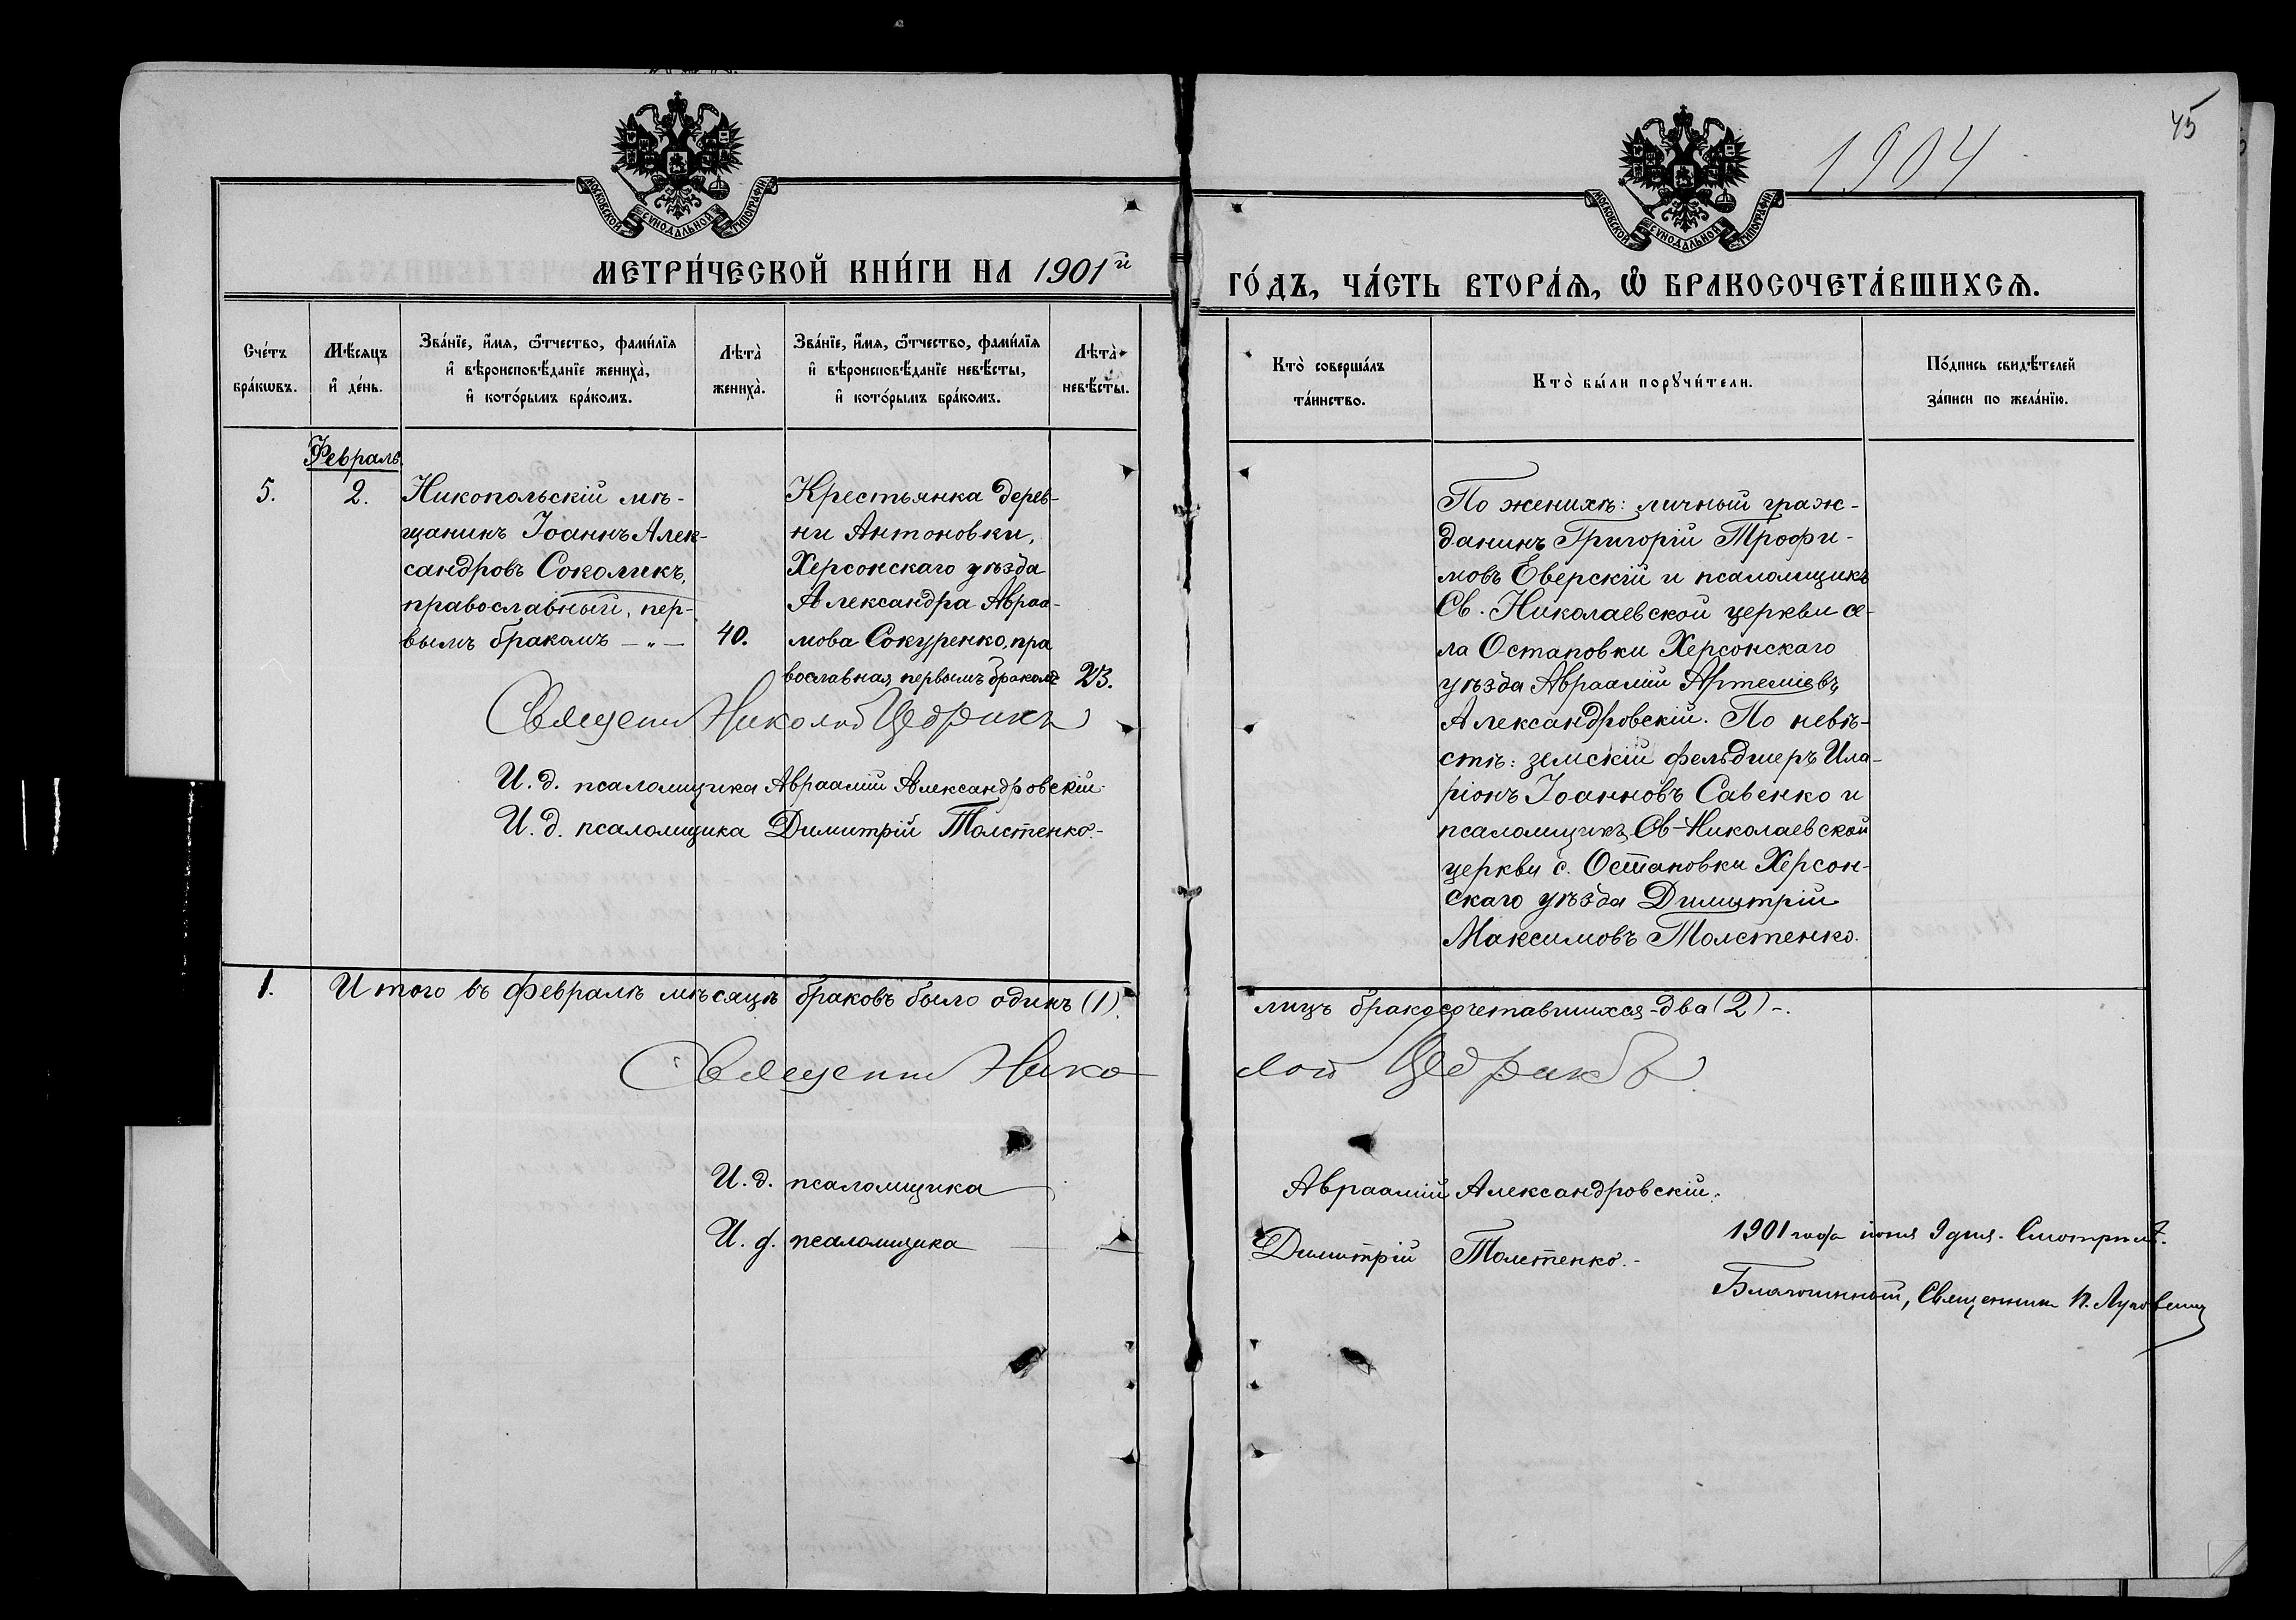 1904
45
МОСКОВСКОЙ СѴНОДАЛЬНОЙ ТИПОГРАФІИ
МОСКОВСКОЙ СѴНОДАЛЬНОЙ ТИПОГРАФІИ
МЕТРИ́ЧЕСКОЙ КНИ́ГИ НА 1901й
ГО́ДЪ, ЧА́СТЬ ВТОРА́Ѧ, Ѿ БРАКОСОЧЕТА́ВШИХСѦ.
Сче́тъ
бра́кѡвъ.
Мѣ́сяцъ
и҆ де́нь.
Зва́нїе, и҆́мя, ѻ҆́тчество, фами́лїя
и҆ вѣроисповѣ́данїе жениха̀,
и҆ кото́рымъ бра́комъ.
Лѣта̀
жениха̀.
Зва́нїе, и҆́мя, ѻ҆́тчество, фами́лїя
и҆ вѣроисповѣ́данїе невѣ́сты,
и҆ кото́рымъ бра́комъ.
Лѣта̀
невѣ́сты.
Кто̀ соверша́лъ
та́инство.
Кто̀ бы́ли порꙋчи́тели.
По́дпись свидѣ́телей
за́писи по жела́нїю.
Февраль.
5.
2.
Никопольскій мѣ-
щанинъ Іоаннъ Алек-
сандровъ Соколикъ,
православный, пер-
вымъ бракомъ — „ —
40.
Крестьянка дерев-
ни Антоновки,
Херсонскаго уѣзда
Александра Авраа-
мова Сокуренко, пра
вославная, первымъ бракомъ
23.
Священн Николай Цедрикъ
И. д. псаломщика Авраамій Александровскій.
И. д. псаломщика Димитрій Толстенко.-
По женихѣ: личный граж-
данинъ Григорій Трофи-
мовъ Еверскій и псаломщикъ
Св. Николаевской церкви се-
ла Остаповки Херсонскаго
уѣзда Авраамій Артеміевъ
Александровскій. По невѣ-
стѣ: земскій фельдшеръ Ила-
ріонъ Іоанновъ Савенко и
псаломщикъ Св-Николаевской
церкви с. Остаповки Херсон-
скаго уѣзда Димитрій
Максимовъ Толстенко.
1. Итого въ февралѣ мѣсяцѣ браковъ было одинъ (1).
лицъ бракосочетавшихся-два (2) -.
Священн Нико
лай Цедрикъ
И. д. псаломщика
Авраамій Александровскій.
И. д. псаломщика
Димитрій Толстенко.-
1901 года іюня 9 дня. Смотрѣлъ.
Благочинный, Священникъ